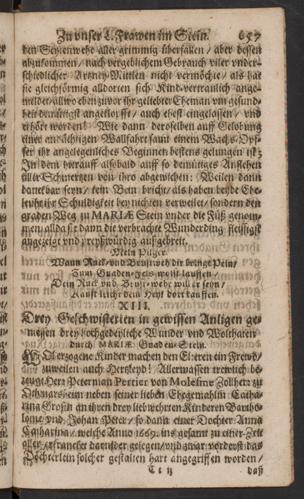 Zu unser L. Frawen im Stein. 657
den Seytenwehe aller grimmig überfallen / aber dessen
abzukommen / nach vergeblichem Gebrauch viler under-
schidlicher Artzney-Mittlen nicht vermöchte / als hat
sie gleichförmig alldorten sich Kind-vertraulich ange-
meldet / allwo eben zuvor ihr geliebter Eheman um gesund-
heit demütigst angeloffen / auch ehest eingelassen / und
erhöret worden: Wie dann deroselben auff Gelobung
einer andächtigen Wallfahrt samt einem Wachs-Opf-
fer ihr angelegenliches Beginnen bestens gelungen ist;
In dem hierauff alsobald auff so demütiges Anflehen
aller Schmertzen von ihro abgewichen: Weilen dann
danckbar seyn / kein Bein bricht / als haben beyde Ehe-
leuth ihr Schuldigkeit bey nichten verweilet / sondern den
graden Weg zu MARIÆ Stein under die Füß genom-
men / allda sie dann die verbrachte Wunderding fleissigst
angezeigt und preyßwürdig auffgebreit.
Mein Pilger.
Wann Ruck- und Brustwehe dir bringt Pein /
Zum Gnaden-Fels wollst lauffen /
Dein Ruck und Brust-wehe will er seyn /
Kanst leicht dein Heyl dort kauffen.
XIII.
Drey Geschwisterten in gewissen Anligen ge-
niessen drey hochgedeyliche Wunder und Wolthaten
durch MARIÆ Gnaden-Stein.
Wolerzogne Kinder machen den Elteren ein Frewd /
zuweilen auch Hertzleyd! Allerwassen trewlich be-
zeugt Herr Peterman Perrier von Molesme Zollherr zu
neben seiner lieben Ehegemahlin Catha-
rina an ihren drey lieb wehrten Kinderen Bartho-
lome und Johan Peter / so dann einer Dochter Anna
Catharina / welche Anno 1669. ins gesamt zu einer Zeit
aller darnider gelegen / und zwar vorderst das
Döchterlein solcher gestalten hart angegriffen worden /
daß